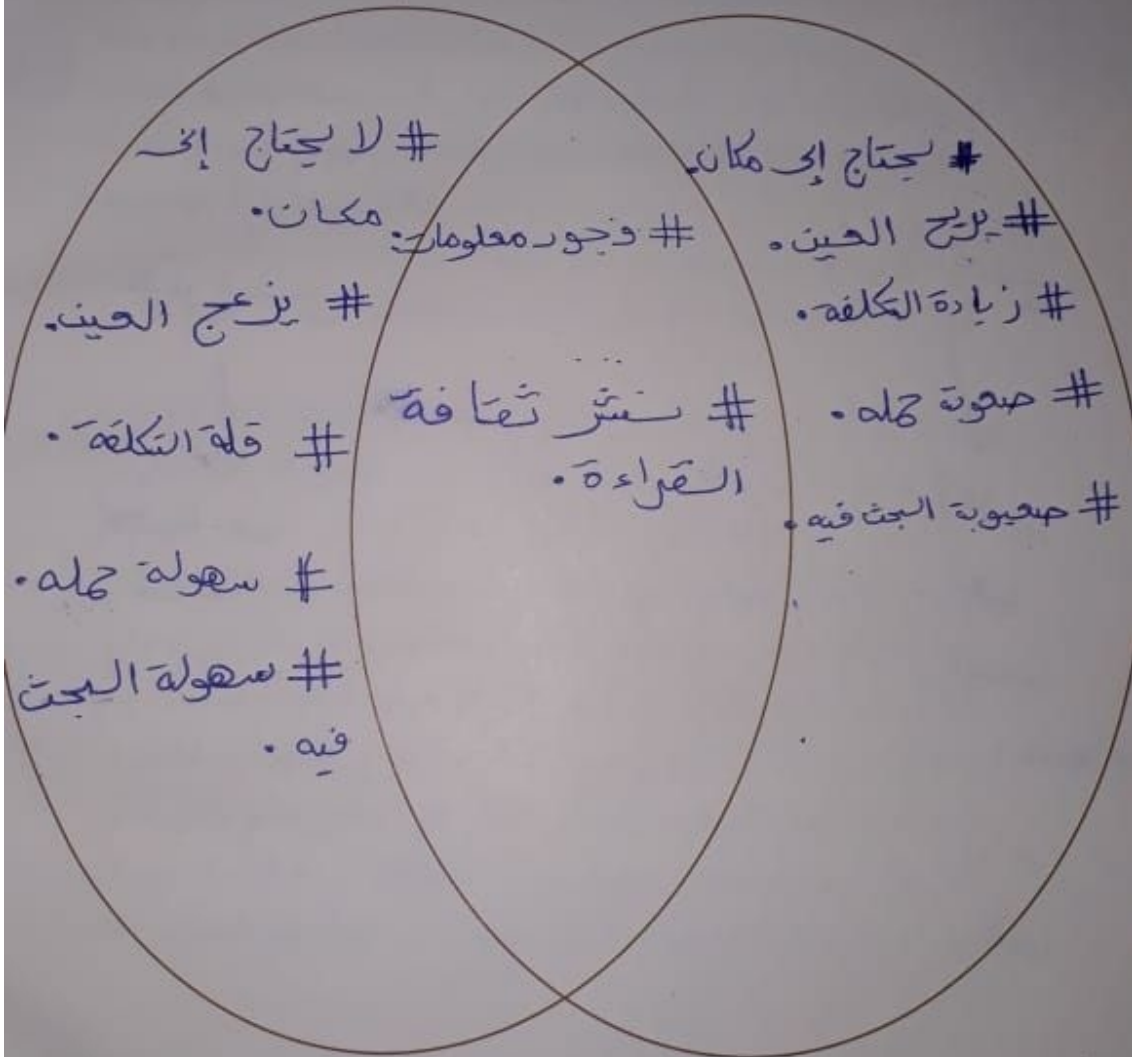 # يحتاج إلى مكان.
# يريح العين.
# زيادة التكلفة.
# صعوبة حمله.
# صعيوبة البحث فيه.
# وجود معلومات.
# نشر ثقافة
القراءة.
# لا يحتاج إلى
مكان.
# يزعج العين.
# قلة التكلفة.
# سهولة حمله.
# سهولة البحث
فيه.